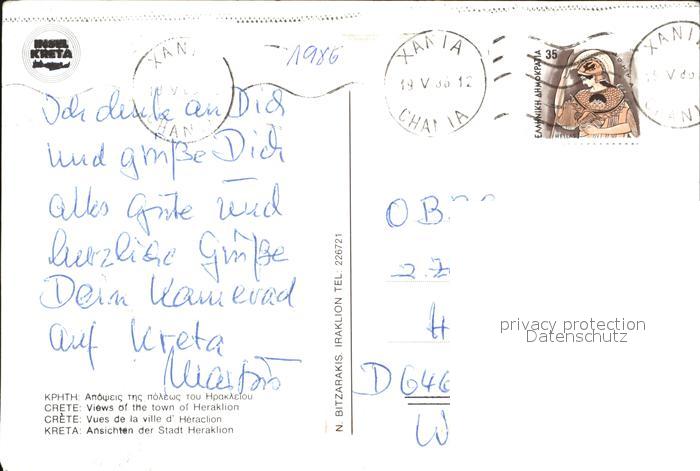 INSEL
KRETA
1986
XANIA
19 V 86 12
CHANIA
XANIA
CHANIA
XANI
CHANI
35
ΕΛΛΗΝΙΚΗ ΔΗΜΟΚΡΑΤΙΑ
HELLAS
Ich denke an Dich
und grüße Dich
alles Gute und
herzliche Grüße
Dein Kamerad
auf Kreta
Martin
OB
2. Z
H
D 646
W
privacy protection
Datenschutz
N. BITZARAKIS. IRAKLION TEL: 226721
ΚΡΗΤΗ: Απόψεις της πόλεως του Ηρακλείου
CRETE: Views of the town of Heraklion
CRÈTE: Vues de la ville d' Héraclion
KRETA: Ansichten der Stadt Heraklion